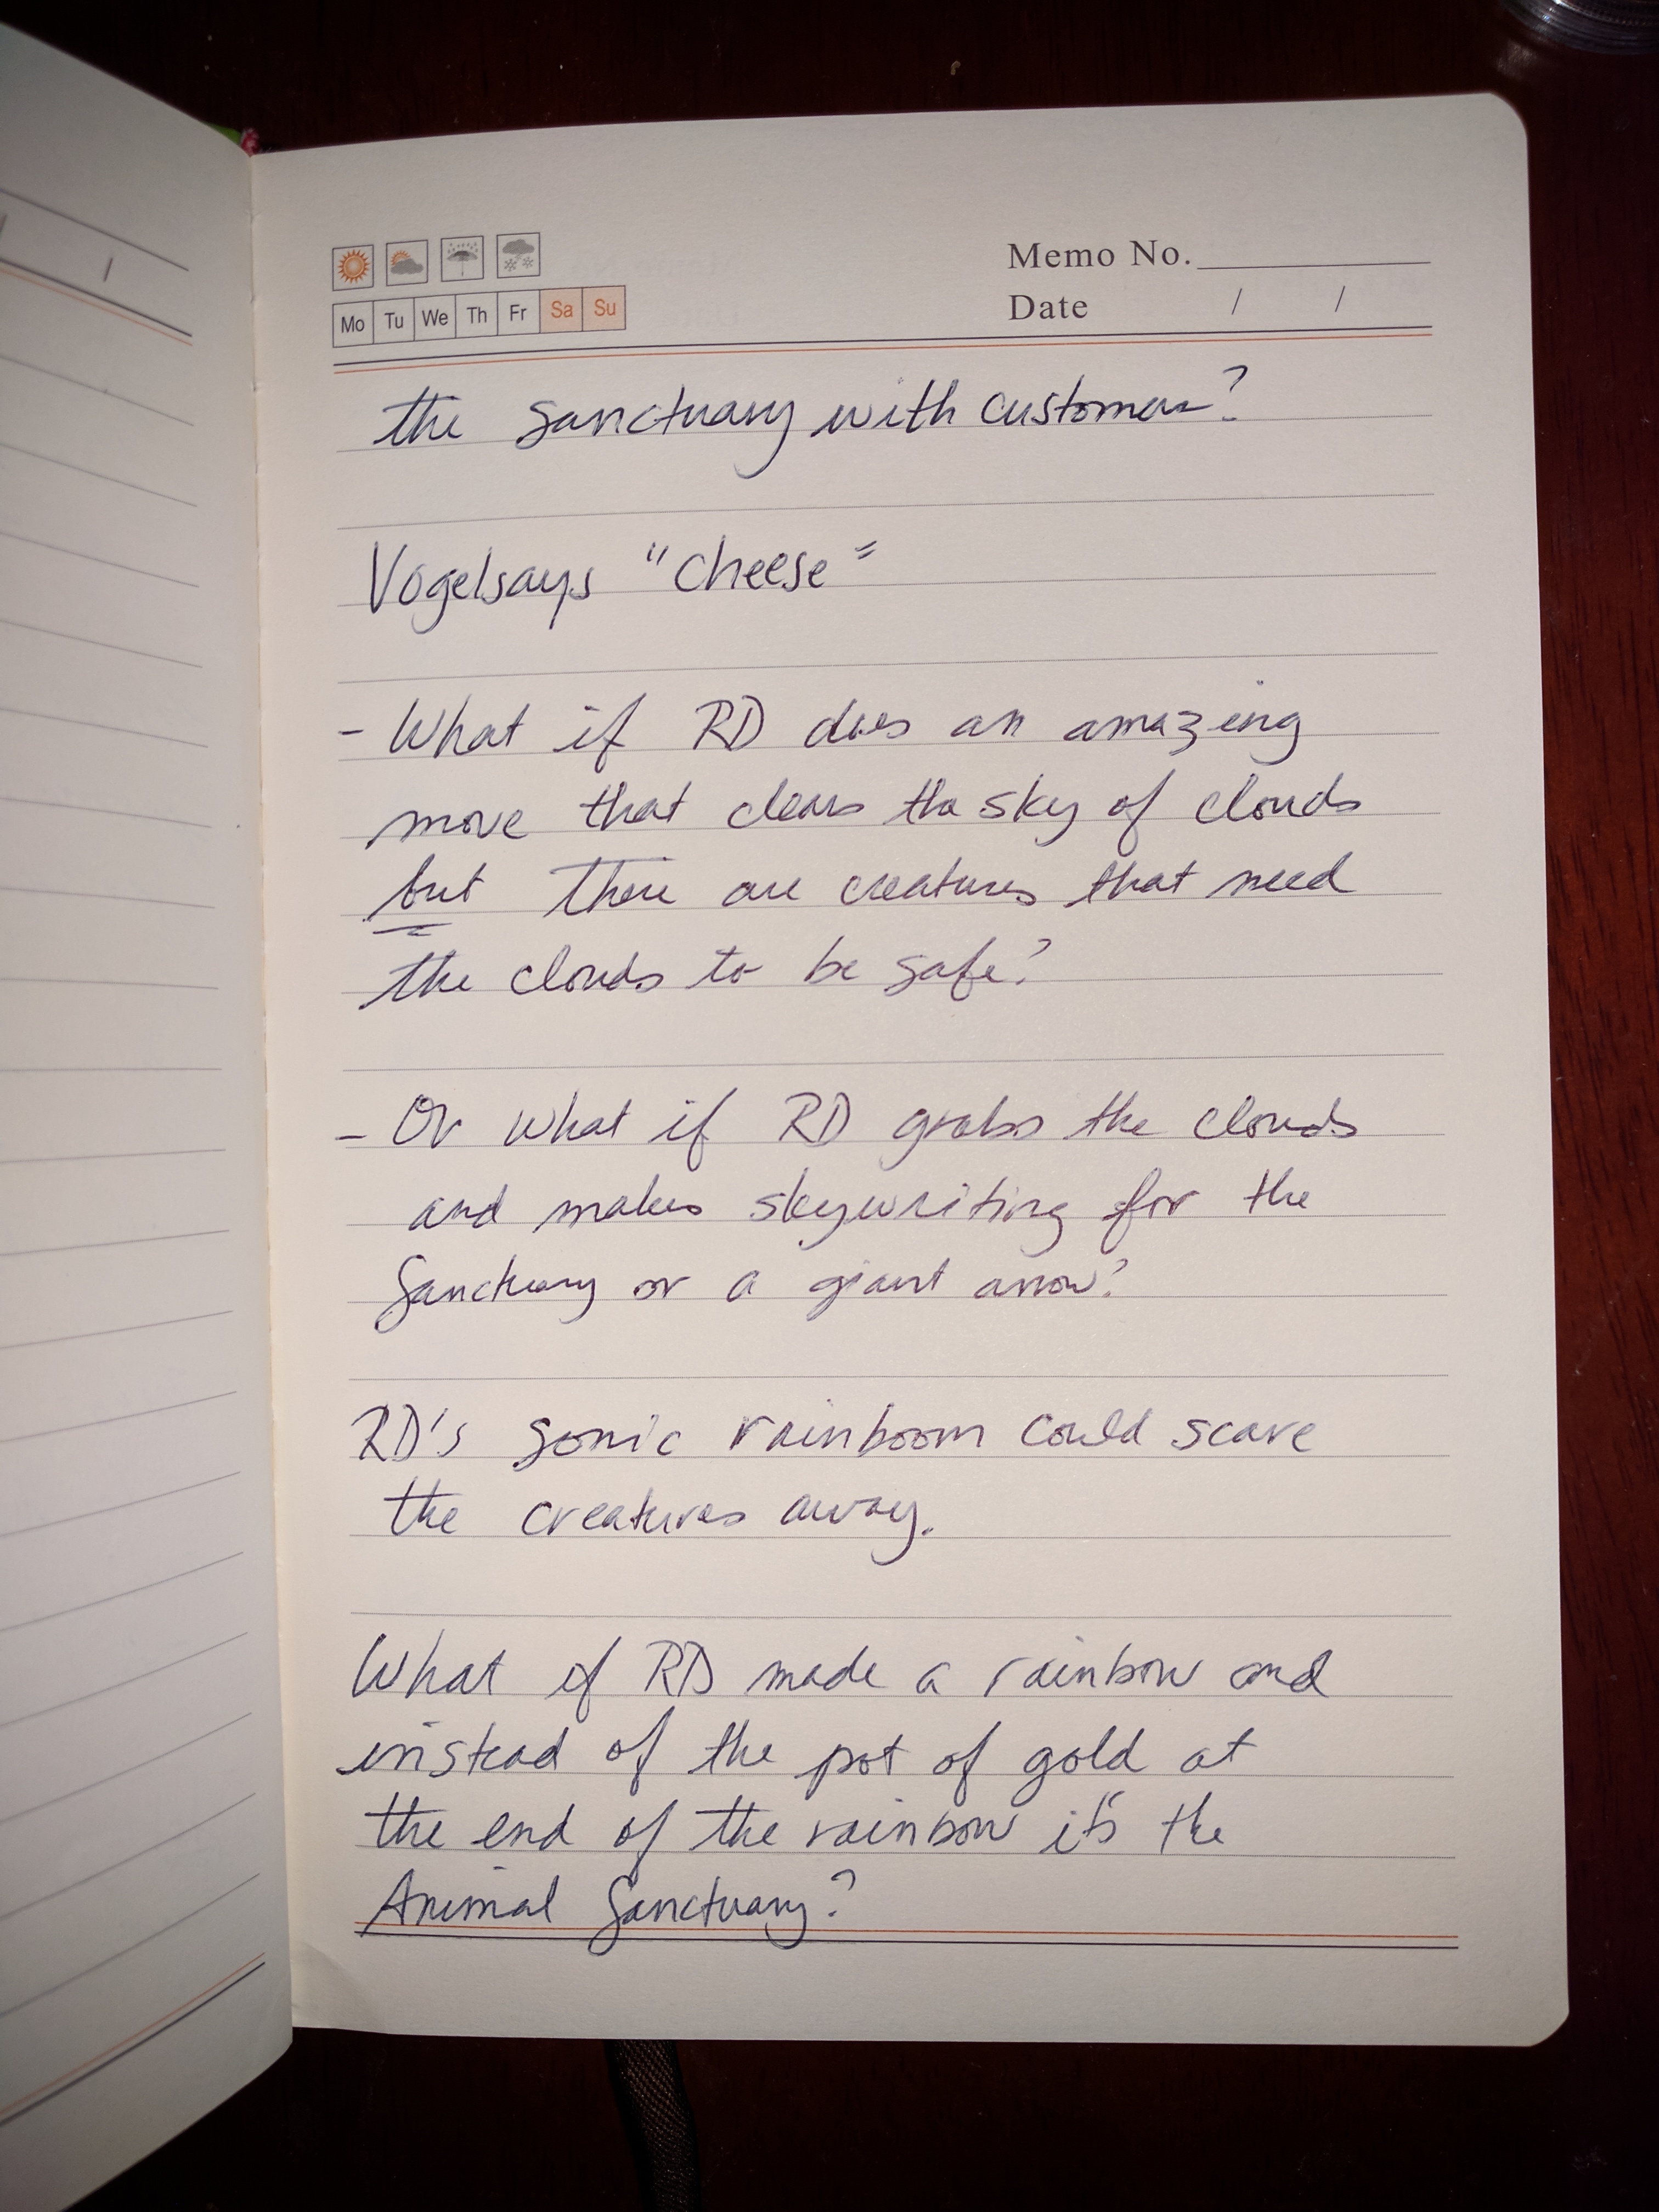 Memo No.
Mo Tu We Th Fr Sa Su
Date / /
the Sanctuary with customers?
Vogelsays "cheese"
- What if RD does an amazing
move that clears the sky of clouds
but there are creatures that need
the clouds to be safe?
- Or what if RD grabs the clouds
and makes skywriting for the
Sanctuary or a giant arrow?
RD's sonic rainboom could scare
the creatures away.
What if RD made a rainbow and
instead of the pot of gold at
the end of the rainbow it's the
Animal Sanctuary?